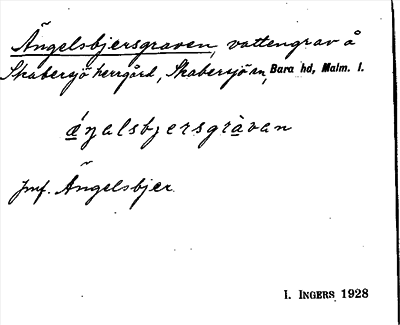 Ängelsbjersgraven, vattengrav å
Skabersjö herrgård, Skabersjö sn, Bara hd, Malm. l.
áŋalsbjersgràvan
Jmf. Ängelsbjer.
I. INGERS 1928